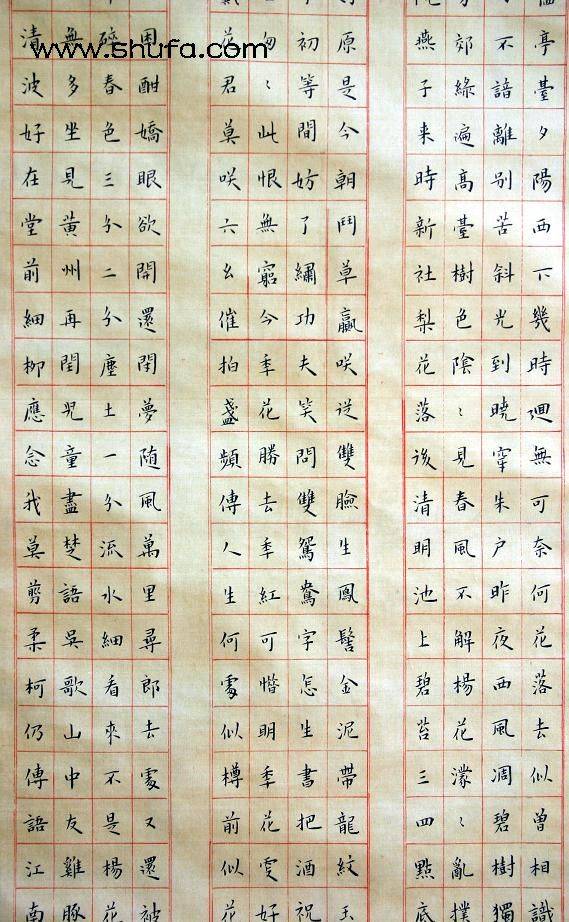 www.shufa.com
亭臺夕陽西下幾時迴無可奈何花落去似曾相識
不諳離別苦斜光到曉穿朱戶昨夜西風凋碧樹獨
郊綠遍高臺樹色陰〻見春風不解楊花濛〻亂撲
燕子来時新社梨花落後清明池上碧苔三四點底
原是今朝鬥草贏咲從雙臉生鳳髻金泥帶龍紋玉
初等間妨了繡功夫笑問雙鴛鴦字怎生書把酒祝
匆〻此恨無窮今季花勝去季紅可惜明季花更好
花君莫咲六幺催拍盞頻傳人生何處似樽前似花
困酣嬌眼欲開還閉夢随風萬里尋郎去處又還被
碎春色三分二分塵土一分流水細看來不是楊花
無多坐見黃州再閏兒童盡楚語吳歌山中友雞豚
清波好在堂前細柳應念我莫剪柔柯仍傳語江南